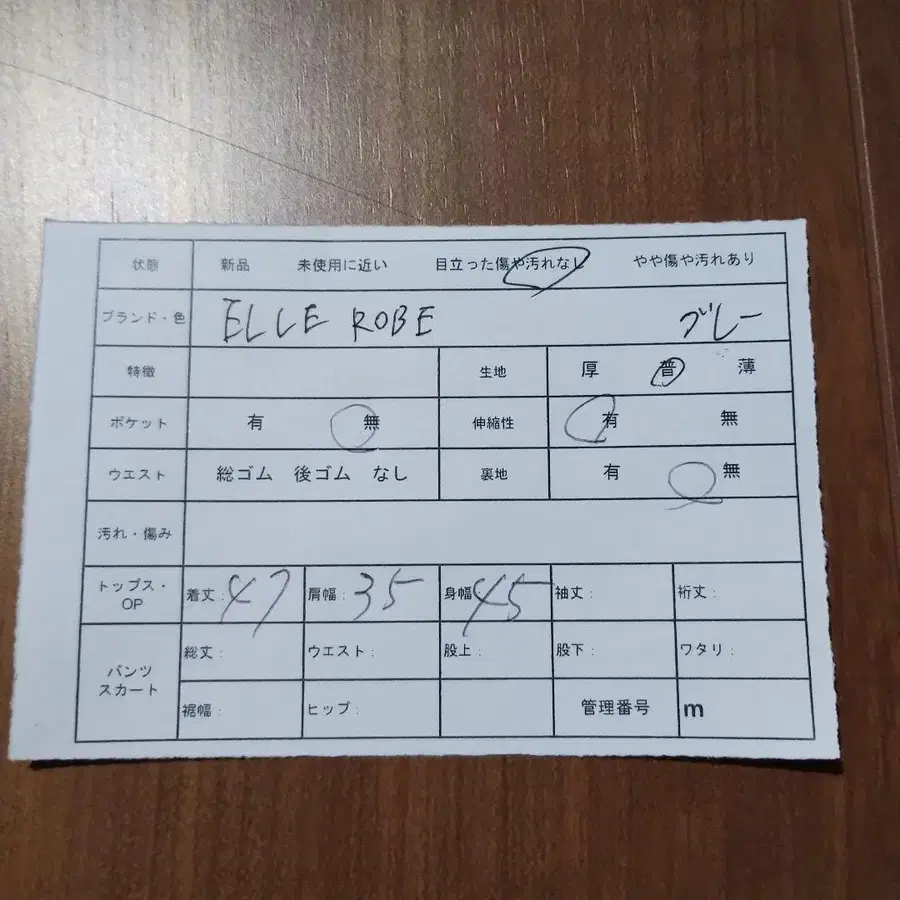 状態 新品 未使用に近い 目立った傷や汚れなし やや傷や汚れあり
ブランド・色 ELLE ROBE グレー
特徴 生地 厚 普 薄
ポケット 有 無 伸縮性 有 無
ウエスト 総ゴム 後ゴム なし 裏地 有 無
汚れ・傷み
トップス・OP 着丈: 47 肩幅: 35 身幅 45 袖丈: 裄丈:
パンツ スカート 総丈: ウエスト: 股上: 股下: ワタリ:
裾幅: ヒップ: 管理番号 m